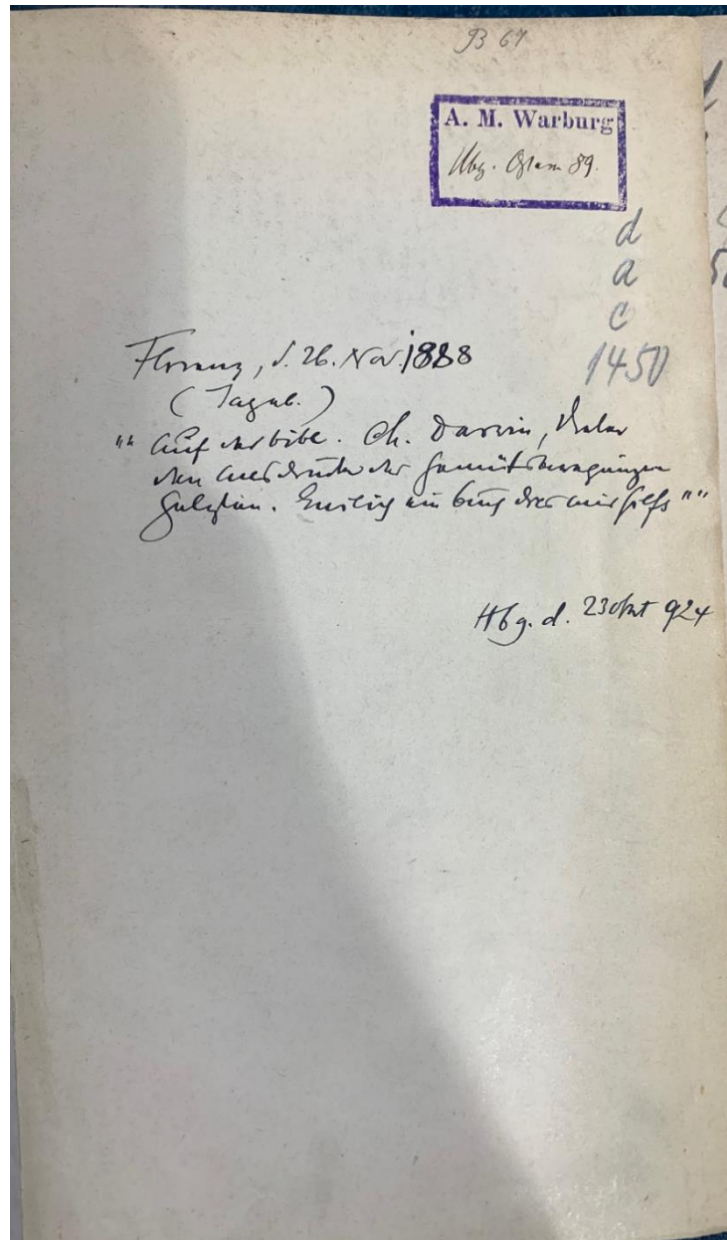 B 67
A. M. Warburg
Hbg. Ostern 89.
d
a
c
1450
Florenz, d. 26. Nov. 1888
(Tageb.)
"" Auf der bibl. Ch. Darwin, Ueber
den Ausdruck der Gemütsbewegungen
gelesen. Endlich ein Buch das mir hilft ""
Hbg. d. 23 Okt 924